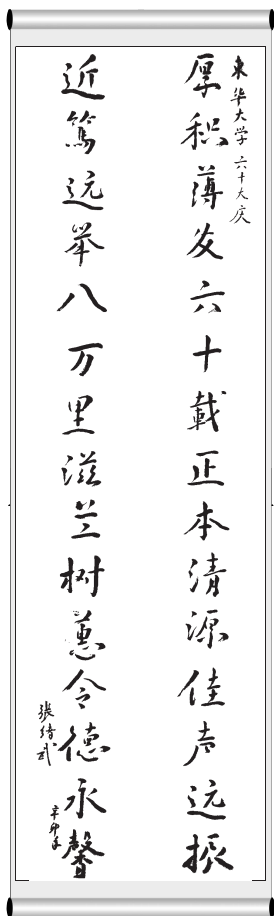 東华大学六十大庆
厚积薄发六十載正本清源佳声远振
近篤远举八万里滋兰树蕙令德永馨
張绪武
辛卯年